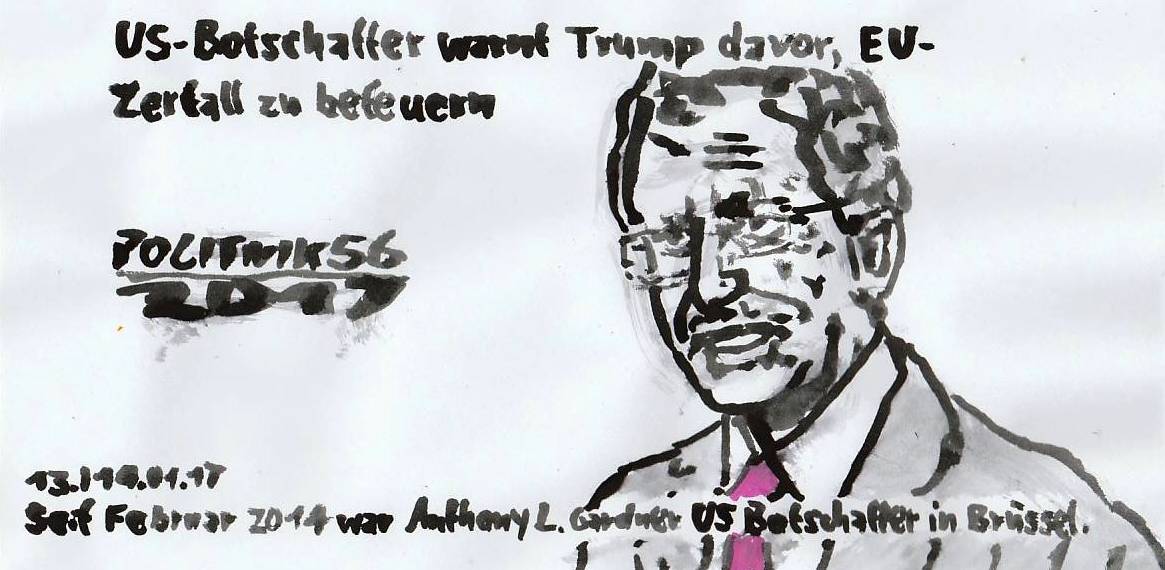 US-Botschafter warnt Trump davor, EU-
Zerfall zu befeuern
POLITNIK56
2017
13./14.01.17
Seit Februar 2014 war Anthony L. Gardner US Botschafter in Brüssel.